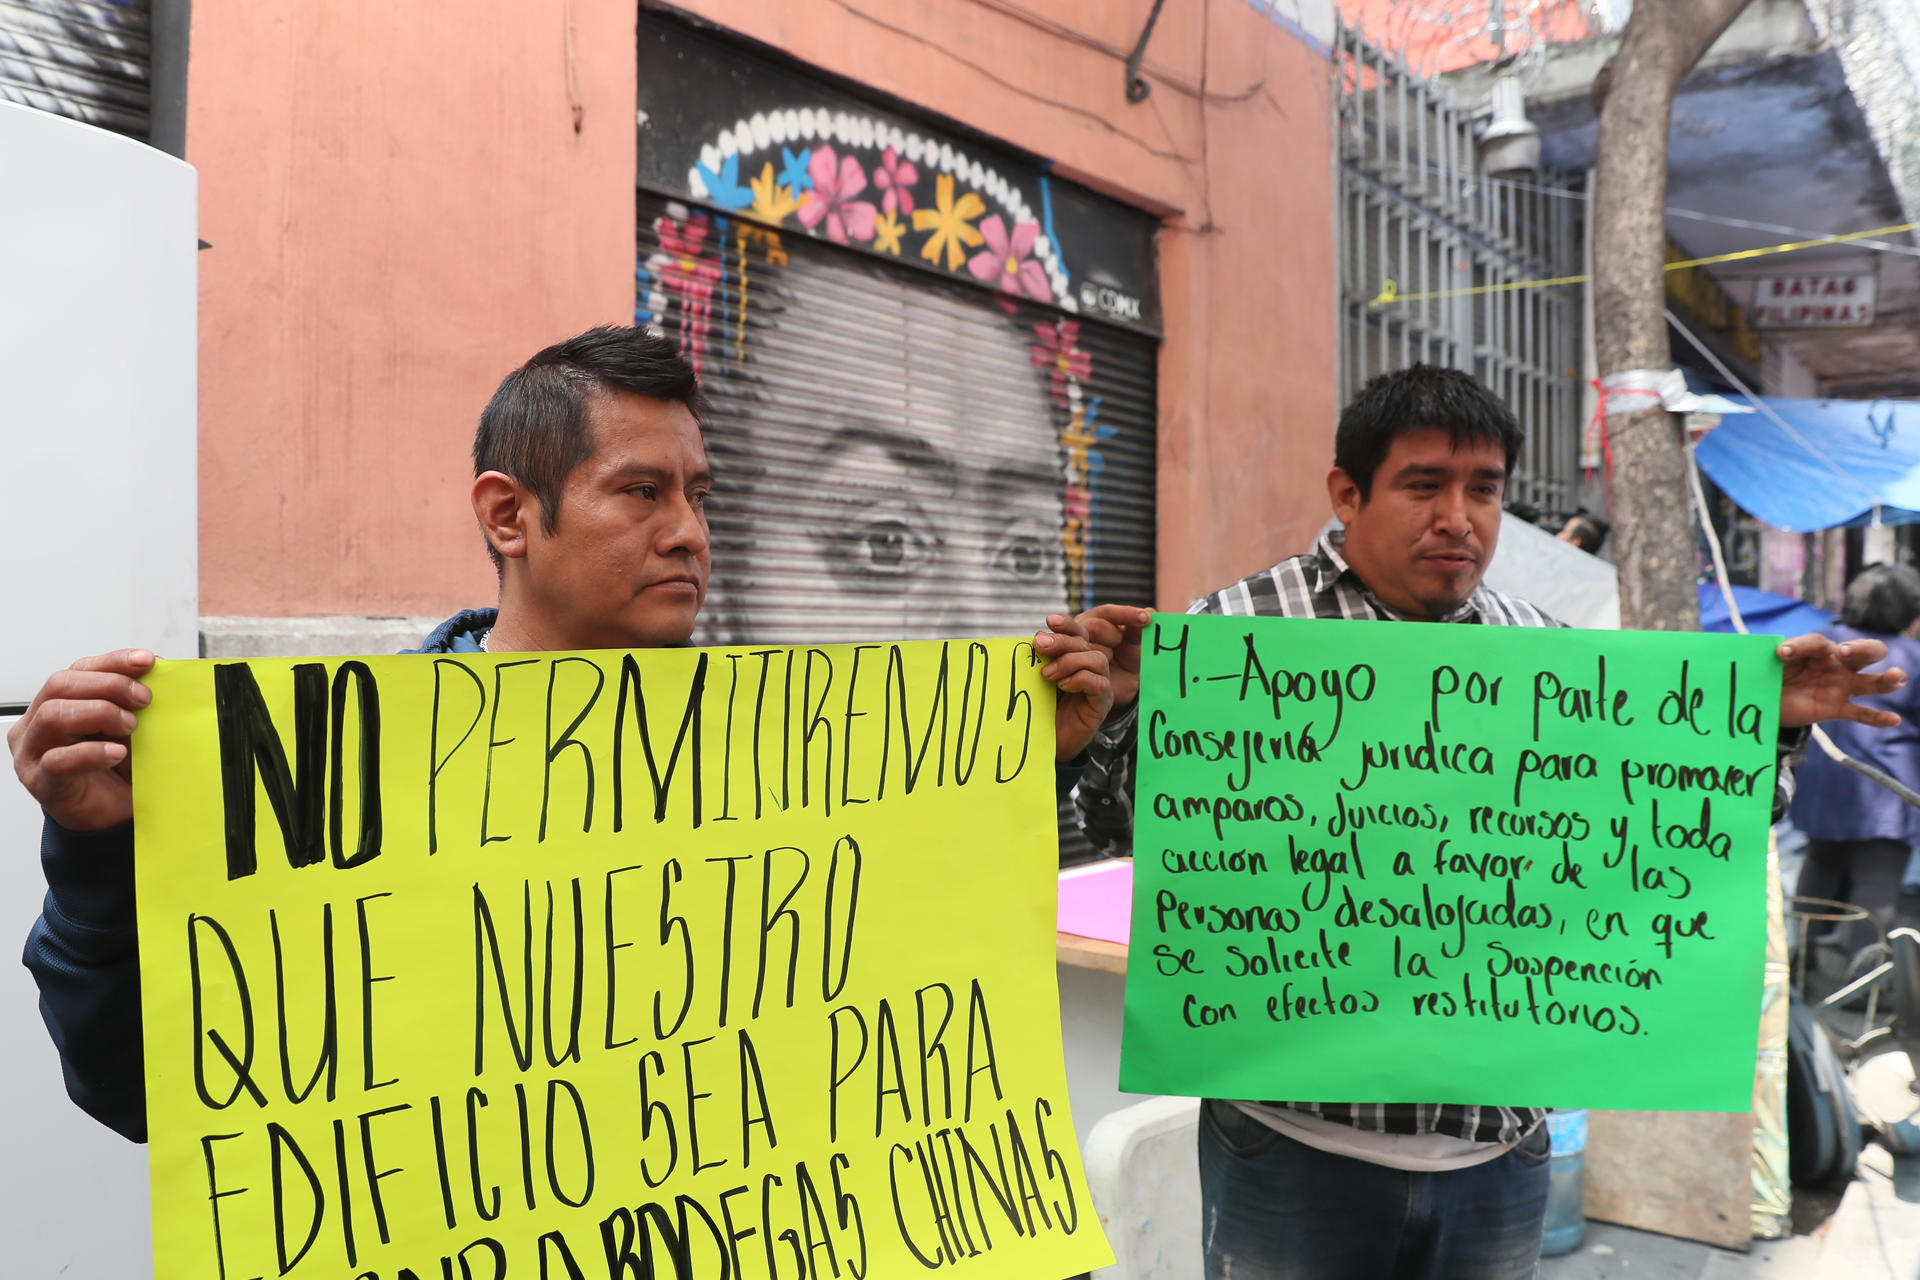 CDMX
BATAS
FILIPINAS
NO PERMITIREMOS
QUE NUESTRO
EDIFICIO SEA PARA
BODEGAS CHINAS
4.-Apoyo por parte de la
Consejería jurídica para promover
amparos, Juicios, recursos y toda
acción legal a favor de las
Personas desalojadas, en que
se solicite la Sospención
con efectos restitutorios.